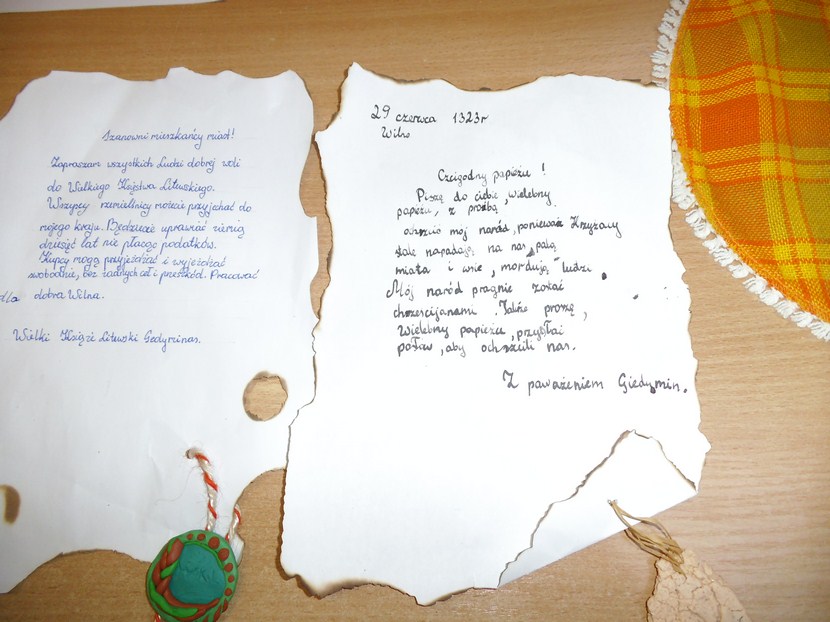 Szanowni mieszkańcy miast!
Zapraszam wszystkich Ludzi dobrej woli
do Wielkiego Księstwa Litewskiego.
Wszyscy rzemielnicy możecie przyjechać do
mojego kraju. Będziecie uprawiać ziemię
dziesięć lat nie płacąc podatków.
Kupcy mogą przyjeżdżać i wyjeżdżać
swobodnie, bez żadnych ceł i przeszkód. Pracować
dla dobra Wilna.
Wielki Książe Litewski Gedyminas.
29 czerwca 1323r
Wilno
Czcigodny papieżu !
Piszę do ciebie, wielebny
papieżu, z prośbą
ochrzcić mój naród, ponieważ Krzyżacy
stale napadają na nas, palą
miasta i wsie, mordują ludzi.
Mój naród pragnie zostać
chrześcijanami. Także proszę,
Wielebny papieżu, przysłać
posłów, aby ochrzcili nas.
Z paważeniem Giedymin.